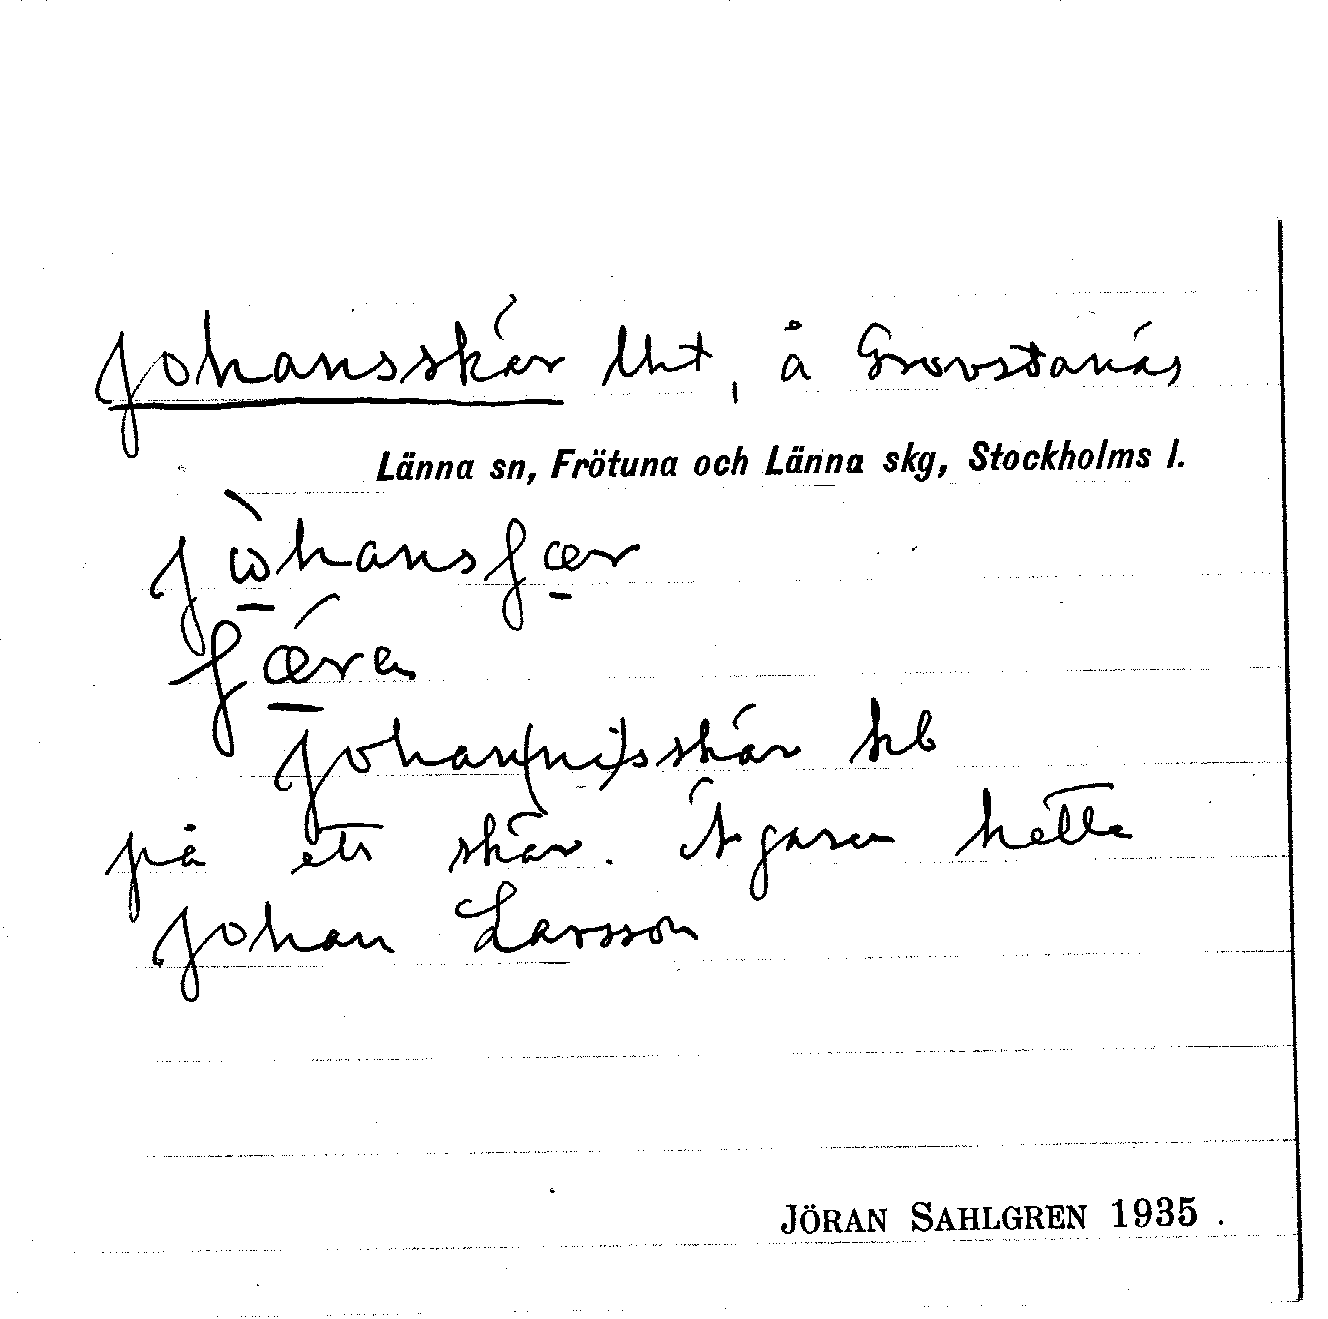 Johansskär lht, å Grovstanäs
Länna sn, Frötuna och Länna skg, Stockholms l.
jὼhansʃær
ʃǽra
Johan(ni)sskär hb
på ett skär. Ägaren hette
Johan Larsson
JÖRAN SAHLGREN 1935.